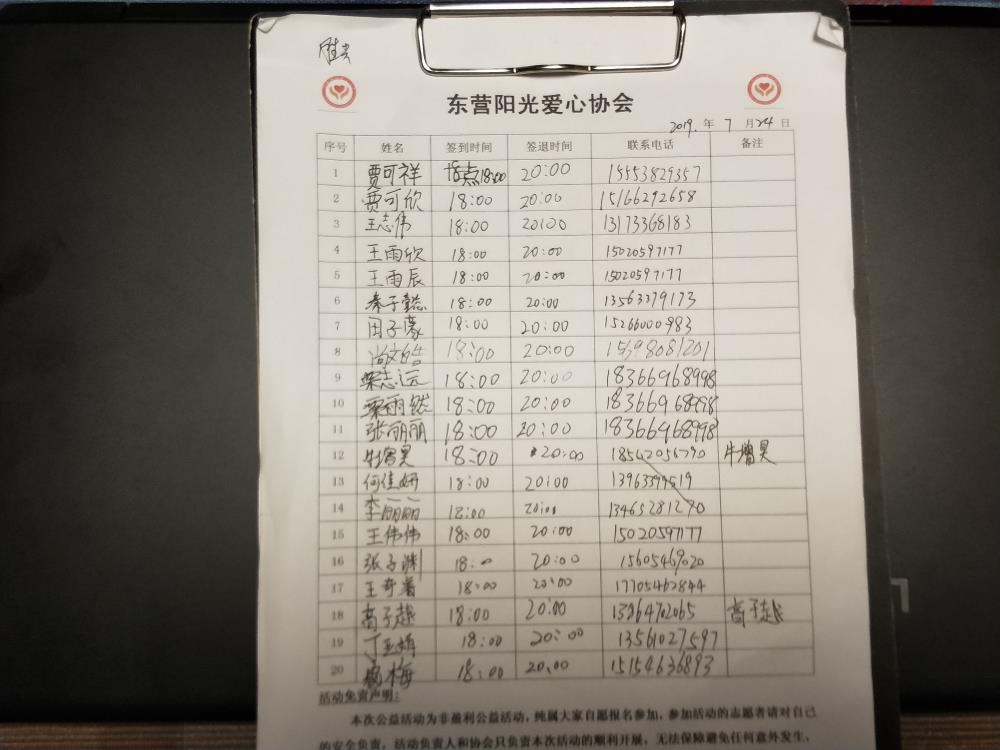 东营阳光爱心协会
2019. 年 7 月 24 日
序号 姓名 签到时间 签退时间 联系电话 备注
1 贾可祥 18点18:00 20:00 15553829357
2 贾可欣 18:00 20:00 15166292658
3 王志伟 18:00 20:00 13173368183
4 王雨欣 18:00 20:00 15020597177
5 王雨辰 18:00 20:00 15020597177
6 秦子懿 18:00 20:00 13563379173
7 田子豪 18:00 20:00 15266000983
8 尚文皓 18:00 20:00 15698081201
9 栾志远 18:00 20:00 18366968998
10 栾雨然 18:00 20:00 18366968998
11 张丽丽 18:00 20:00 18366968998
12 牛增昊 18:00 20:00 18542056790 牛增昊
13 何佳妍 18:00 20:00 13963399519
14 李丽丽 18:00 20:00 13465281290
15 王伟伟 18:00 20:00 15020597177
16 张子渊 18:00 20:00 15605469020
17 王奇 18:00 20:00 17705462844
18 高子越 18:00 20:00 13264702065 高子越
19 丁玉娟 18:00 20:00 13561027597
20 梅 18:00 20:00 15154636893
活动免责声明:
本次公益活动为非盈利公益活动，纯属大家自愿报名参加，参加活动的志愿者请对自己
的安全负责，活动负责人和协会只负责本次活动的顺利开展，无法保障避免任何意外发生，